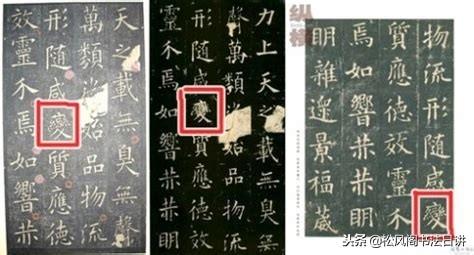 天之載無臭無聲
萬類始品物流
形隨感變質應德
效靈不焉如響赫
力上天之載無臭無
聲萬類始品物流
形隨感變質應德效
靈不焉如響赫赫明
纵横
物流形隨感變
質應德效靈不
焉如響赫赫明
明雜遝景福葳
头条@松风阁书法日讲